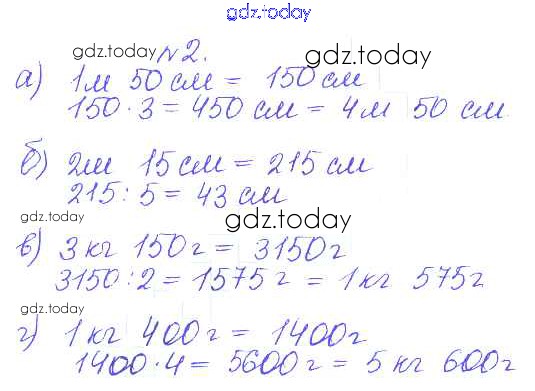 gdz.today
gdz.today №2. gdz.today
а) 1м 50 см = 150 см
150 · 3 = 450 см = 4 м 50 см
б) 2м 15 см = 215 см
215 : 5 = 43 см
gdz.today gdz.today
в) 3 кг 150 г = 3150 г
3150 : 2 = 1575 г = 1 кг 575 г
gdz.today
г) 1 кг 400 г = 1400 г
1400 · 4 = 5600 г = 5 кг 600 г